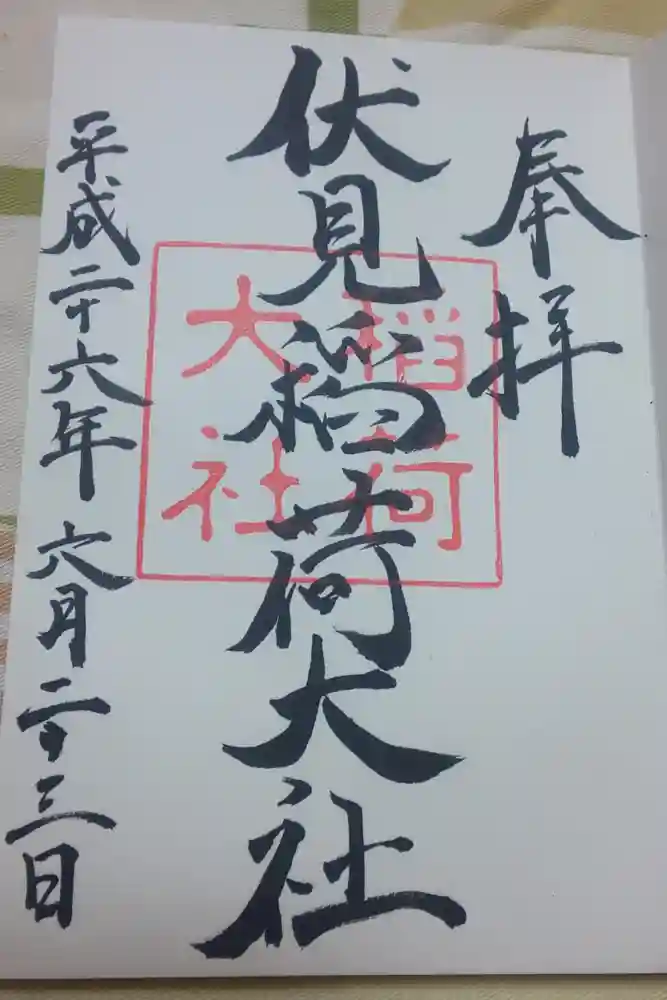 奉拝
伏見稲荷大社
稲荷
大社
平成二十六年六月二十三日